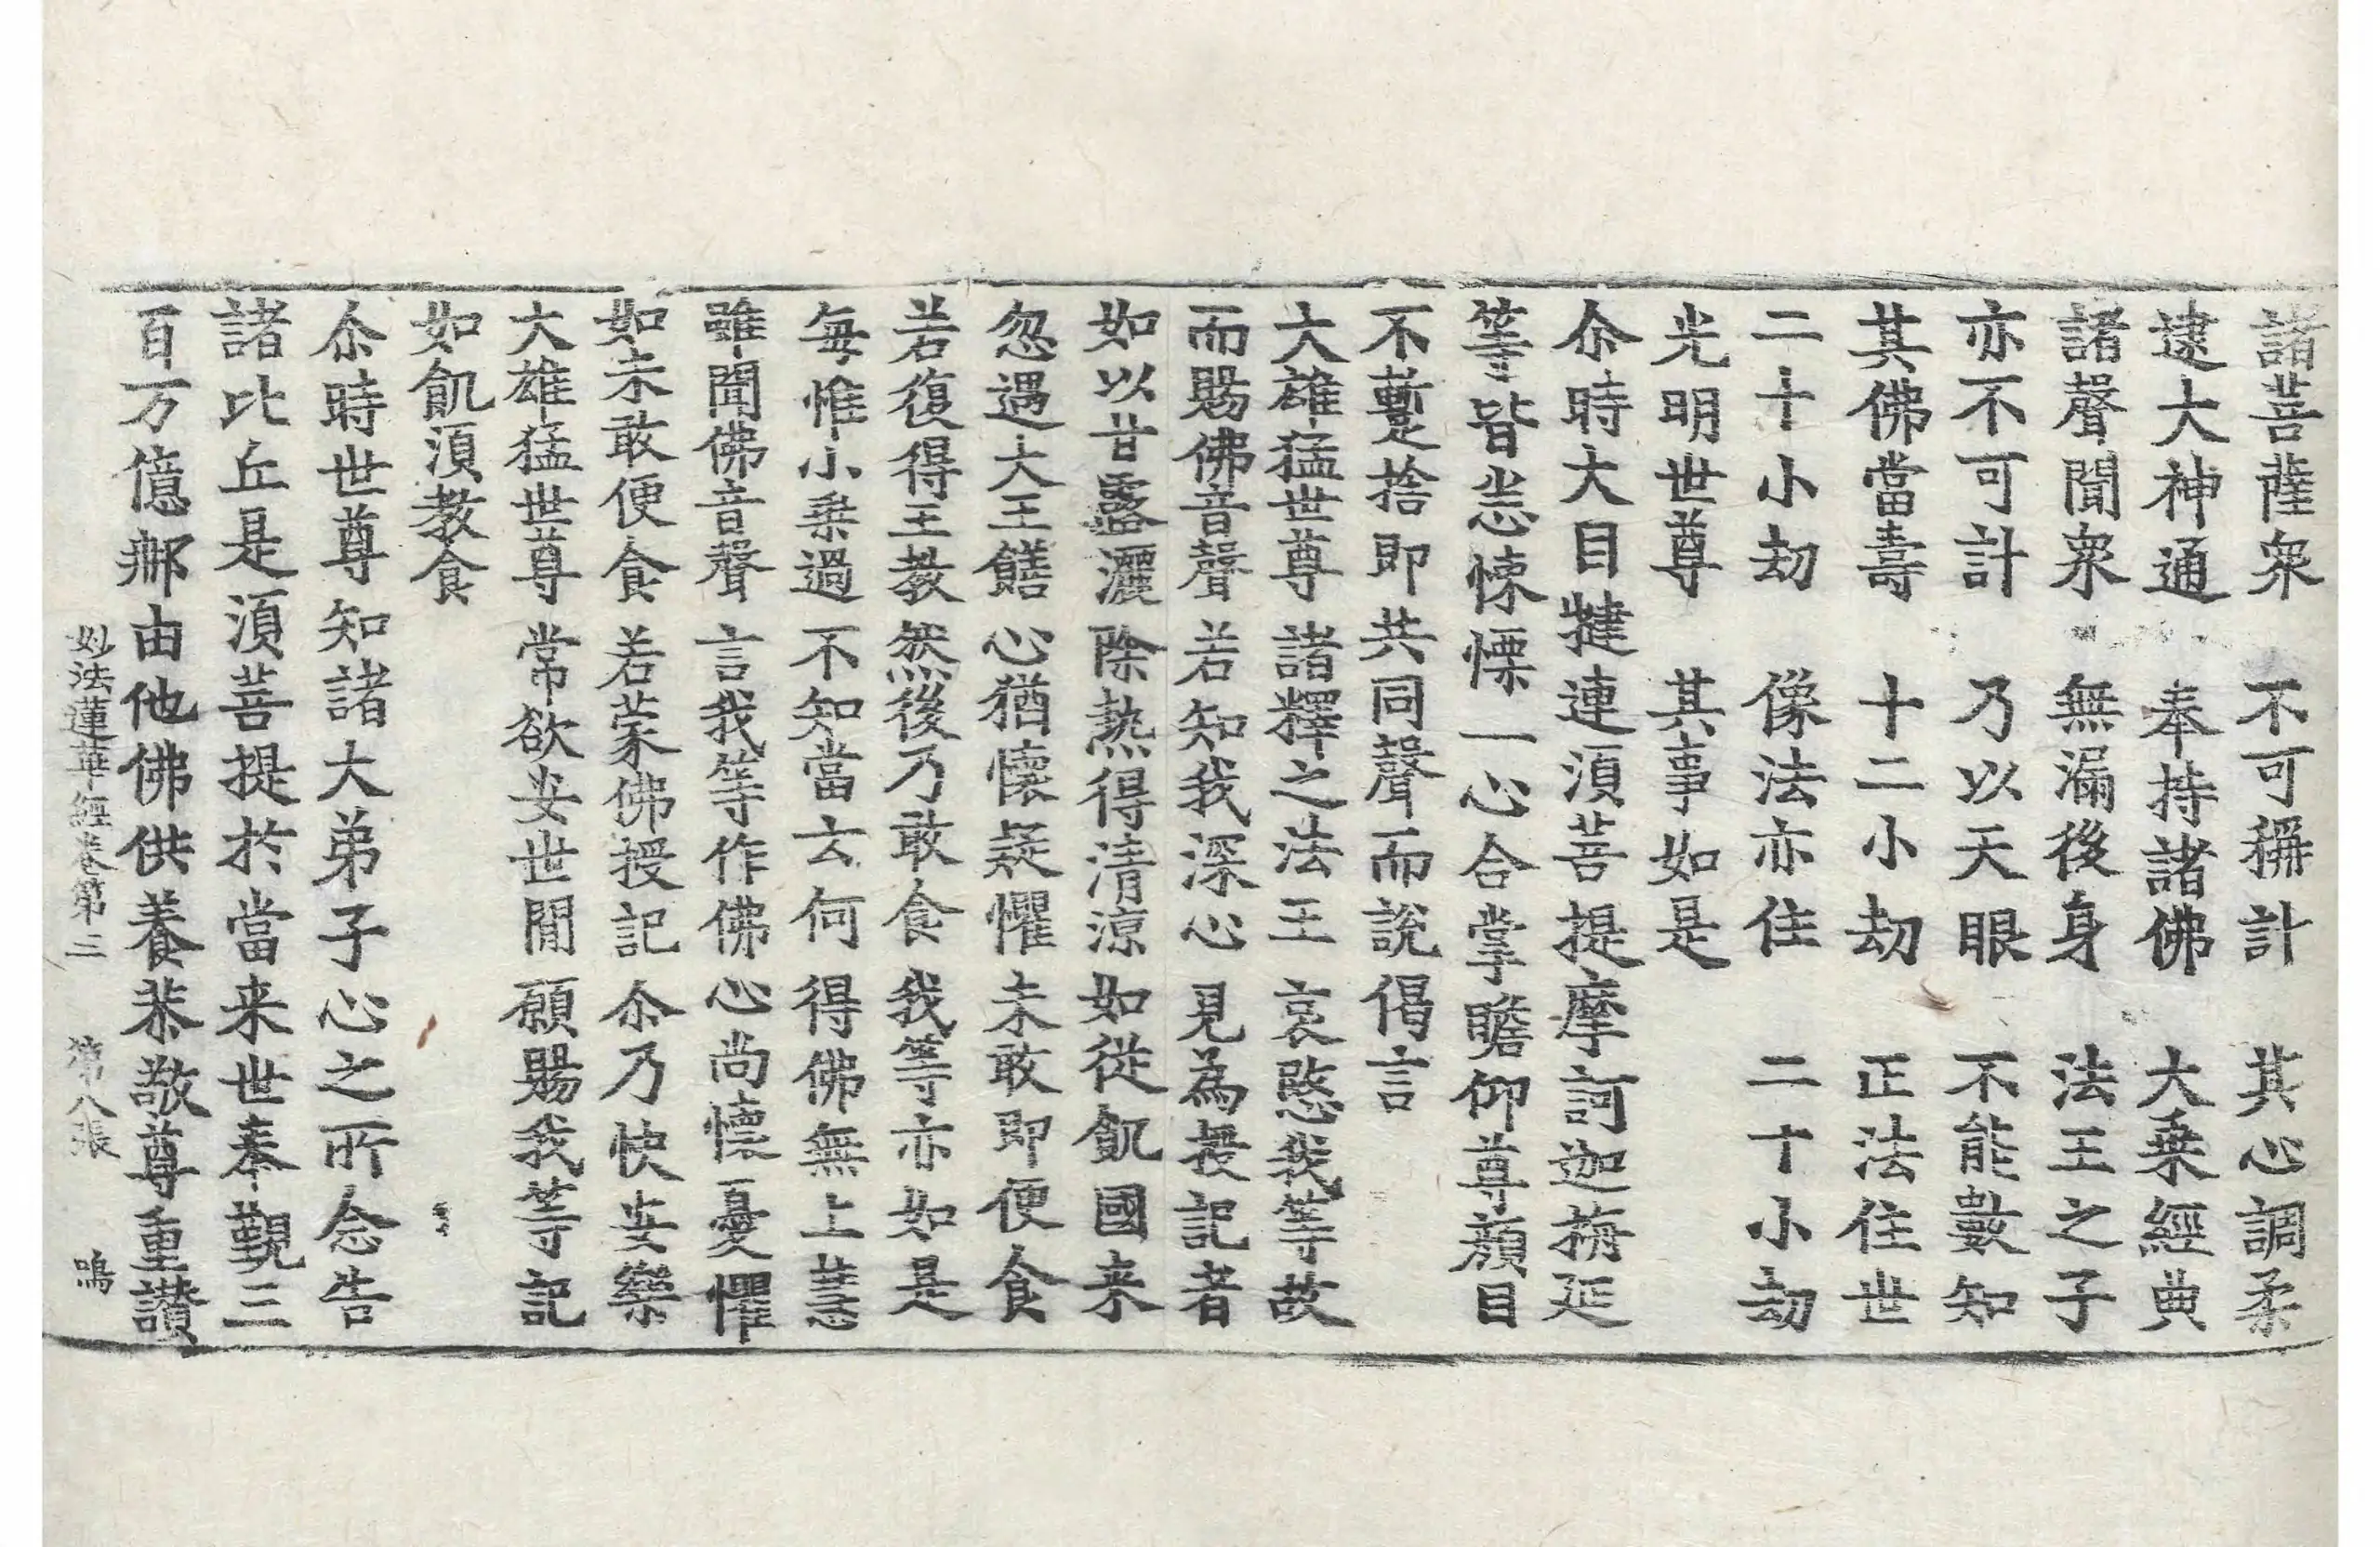 諸菩薩衆　不可稱計　其心調柔
逮大神通　奉持諸佛　大乗經典
諸聲聞衆　無漏後身　法王之子
亦不可計　乃以天眼　不能數知
其佛當壽　十二小劫　正法住世
二十小劫　像法亦住　二十小劫
光明世尊　其事如是
尒時大目揵連須菩提摩訶迦旃延
等皆悉悚慄一心合掌瞻仰尊顔目
不蹔捨即共同聲而說偈言
大雄猛世尊　諸釋之法王　哀愍我等故
而賜佛音聲　若知我深心　見為授記者
如以甘露灑　除熱得清涼　如從飢國来
忽遇大王饍　心猶懷疑懼　未敢即便食
若復得王教　然後乃敢食　我等亦如是
每惟小乗過　不知當云何　得佛無上慧
雖聞佛音聲　言我等作佛　心尚懷憂懼
如未敢便食　若蒙佛授記　尒乃快安樂
大雄猛世尊　常欲安世閒　願賜我等記
如飢須教食
尒時世尊知諸大弟子心之所念告
諸比丘是須菩提於當来世奉覲三
百万億那由他佛供養恭敬尊重讃
妙法蓮華經卷第三　第八張　鳴